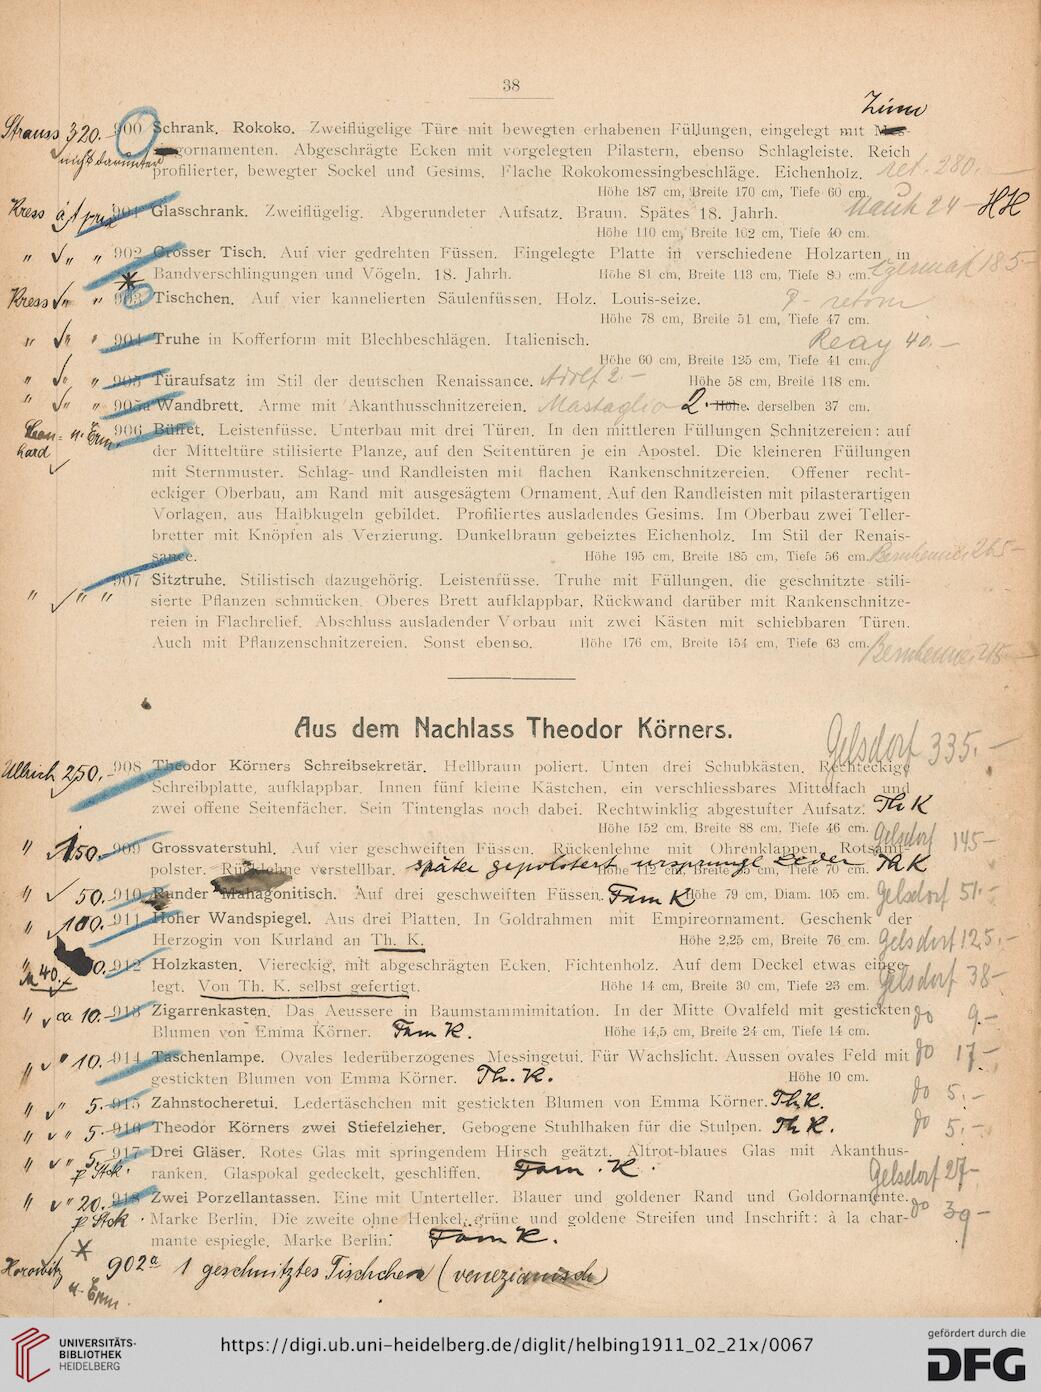 38
Zinn
Strauss 320.- 900 Schrank. Rokoko. Zweiflügelige Türe mit bewegten erhabenen Füllungen, eingelegt mit Mes-
singornamenten. Abgeschrägte Ecken mit vorgelegten Pilastern, ebenso Schlagleiste. Reich
profilierter, bewegter Sockel und Gesims. Flache Rokokomessingbeschläge. Eichenholz. ret. 280.-
Höhe 187 cm, Breite 170 cm, Tiefe 60 cm.
Kress 901 Glasschrank. Zweiflügelig. Abgerundeter Aufsatz. Braun. Spätes 18. Jahrh. 24 - HH
Höhe 110 cm, Breite 102 cm, Tiefe 40 cm.
" " " 902 Grosser Tisch. Auf vier gedrehten Füssen. Eingelegte Platte in verschiedene Holzarten in
Bandverschlingungen und Vögeln. 18. Jahrh. Höhe 81 cm, Breite 113 cm, Tiefe 80 cm. 185-
Kress " " 903 Tischchen. Auf vier kannelierten Säulenfüssen. Holz. Louis-seize.
Höhe 78 cm, Breite 51 cm, Tiefe 47 cm.
" " " 904 Truhe in Kofferform mit Blechbeschlägen. Italienisch. 40.-
Höhe 60 cm, Breite 125 cm, Tiefe 41 cm.
" " " 905 Türaufsatz im Stil der deutschen Renaissance. Adolf 2.- Höhe 58 cm, Breite 118 cm.
" " " 905a Wandbrett. Arme mit Akanthusschnitzereien. Mastaglio 2. Höhe derselben 37 cm.
906 Büffet. Leistenfüsse. Unterbau mit drei Türen. In den mittleren Füllungen Schnitzereien: auf
der Mitteltüre stilisierte Planze, auf den Seitentüren je ein Apostel. Die kleineren Füllungen
mit Sternmuster. Schlag- und Randleisten mit flachen Rankenschnitzereien. Offener recht-
eckiger Oberbau, am Rand mit ausgesägtem Ornament. Auf den Randleisten mit pilasterartigen
Vorlagen, aus Halbkugeln gebildet. Profiliertes ausladendes Gesims. Im Oberbau zwei Teller-
bretter mit Knöpfen als Verzierung. Dunkelbraun gebeiztes Eichenholz. Im Stil der Renais-
sance. Höhe 195 cm, Breite 185 cm, Tiefe 56 cm. Bernheimer 265-
" " " 907 Sitztruhe. Stilistisch dazugehörig. Leistenfüsse. Truhe mit Füllungen, die geschnitzte stili-
sierte Pflanzen schmücken. Oberes Brett aufklappbar, Rückwand darüber mit Rankenschnitze-
reien in Flachrelief. Abschluss ausladender Vorbau mit zwei Kästen mit schiebbaren Türen.
Auch mit Pflanzenschnitzereien. Sonst ebenso. Höhe 176 cm, Breite 154 cm, Tiefe 63 cm. Bernheimer
Aus dem Nachlass Theodor Körners.
Gelsdorf 335.-
Ullrich 250.- 908 Theodor Körners Schreibsekretär. Hellbraun poliert. Unten drei Schubkästen. Rechteckige
Schreibplatte, aufklappbar. Innen fünf kleine Kästchen, ein verschliessbares Mittelfach und
zwei offene Seitenfächer. Sein Tintenglas noch dabei. Rechtwinklig abgestufter Aufsatz. Th K
Höhe 152 cm, Breite 88 cm, Tiefe 46 cm.
" 150.- 909 Grossvaterstuhl. Auf vier geschweiften Füssen. Rückenlehne mit Ohrenklappen. Rotsamt- Gelsdorf 145-
polster. Rücklehne verstellbar. später gepolstert ursprüngl Leder Höhe 112 cm, Breite cm, Tiefe 70 cm. Th K
" 50.- 910 Runder Mahagonitisch. Auf drei geschweiften Füssen. Fam K Höhe 79 cm, Diam. 105 cm. Gelsdorf 51.-
" 100.- 911 Hoher Wandspiegel. Aus drei Platten. In Goldrahmen mit Empireornament. Geschenk der
Herzogin von Kurland an Th. K. Höhe 2,25 cm, Breite 76 cm. Gelsdorf 125.-
" 40. 912 Holzkasten. Viereckig, mit abgeschrägten Ecken. Fichtenholz. Auf dem Deckel etwas einge-
legt. Von Th. K. selbst gefertigt. Höhe 14 cm, Breite 30 cm, Tiefe 23 cm. Gelsdorf 38-
" ca 10.- 913 Zigarrenkasten. Das Aeussere in Baumstammimitation. In der Mitte Ovalfeld mit gestickten do 9.-
Blumen von Emma Körner. Fam K. Höhe 14,5 cm, Breite 24 cm, Tiefe 14 cm.
" " 10.- 914 Taschenlampe. Ovales lederüberzogenes Messingetui. Für Wachslicht. Aussen ovales Feld mit do 17.-
gestickten Blumen von Emma Körner. Th. K. Höhe 10 cm.
" " 5.- 915 Zahnstocheretui. Ledertäschchen mit gestickten Blumen von Emma Körner. Th K. do 5.-
" " 5.- 916 Theodor Körners zwei Stiefelzieher. Gebogene Stuhlhaken für die Stulpen. Th K. do 5.-
" " 5.- 917 Drei Gläser. Rotes Glas mit springendem Hirsch geätzt. Altrot-blaues Glas mit Akanthus-
p Stck. ranken. Glaspokal gedeckelt, geschliffen. Fam. K. Gelsdorf 27-
" " 20.- 918 Zwei Porzellantassen. Eine mit Unterteller. Blauer und goldener Rand und Goldornamente. do 39-
p Stck. Marke Berlin. Die zweite ohne Henkel, grüne und goldene Streifen und Inschrift: à la char-
mante espiegle. Marke Berlin. Fam K.
Horowitz 902a 1 geschnitztes Tischchen (venezianisch)
UNIVERSITÄTS-
BIBLIOTHEK
HEIDELBERG
https://digi.ub.uni-heidelberg.de/diglit/helbing1911_02_21x/0067
gefördert durch die
DFG